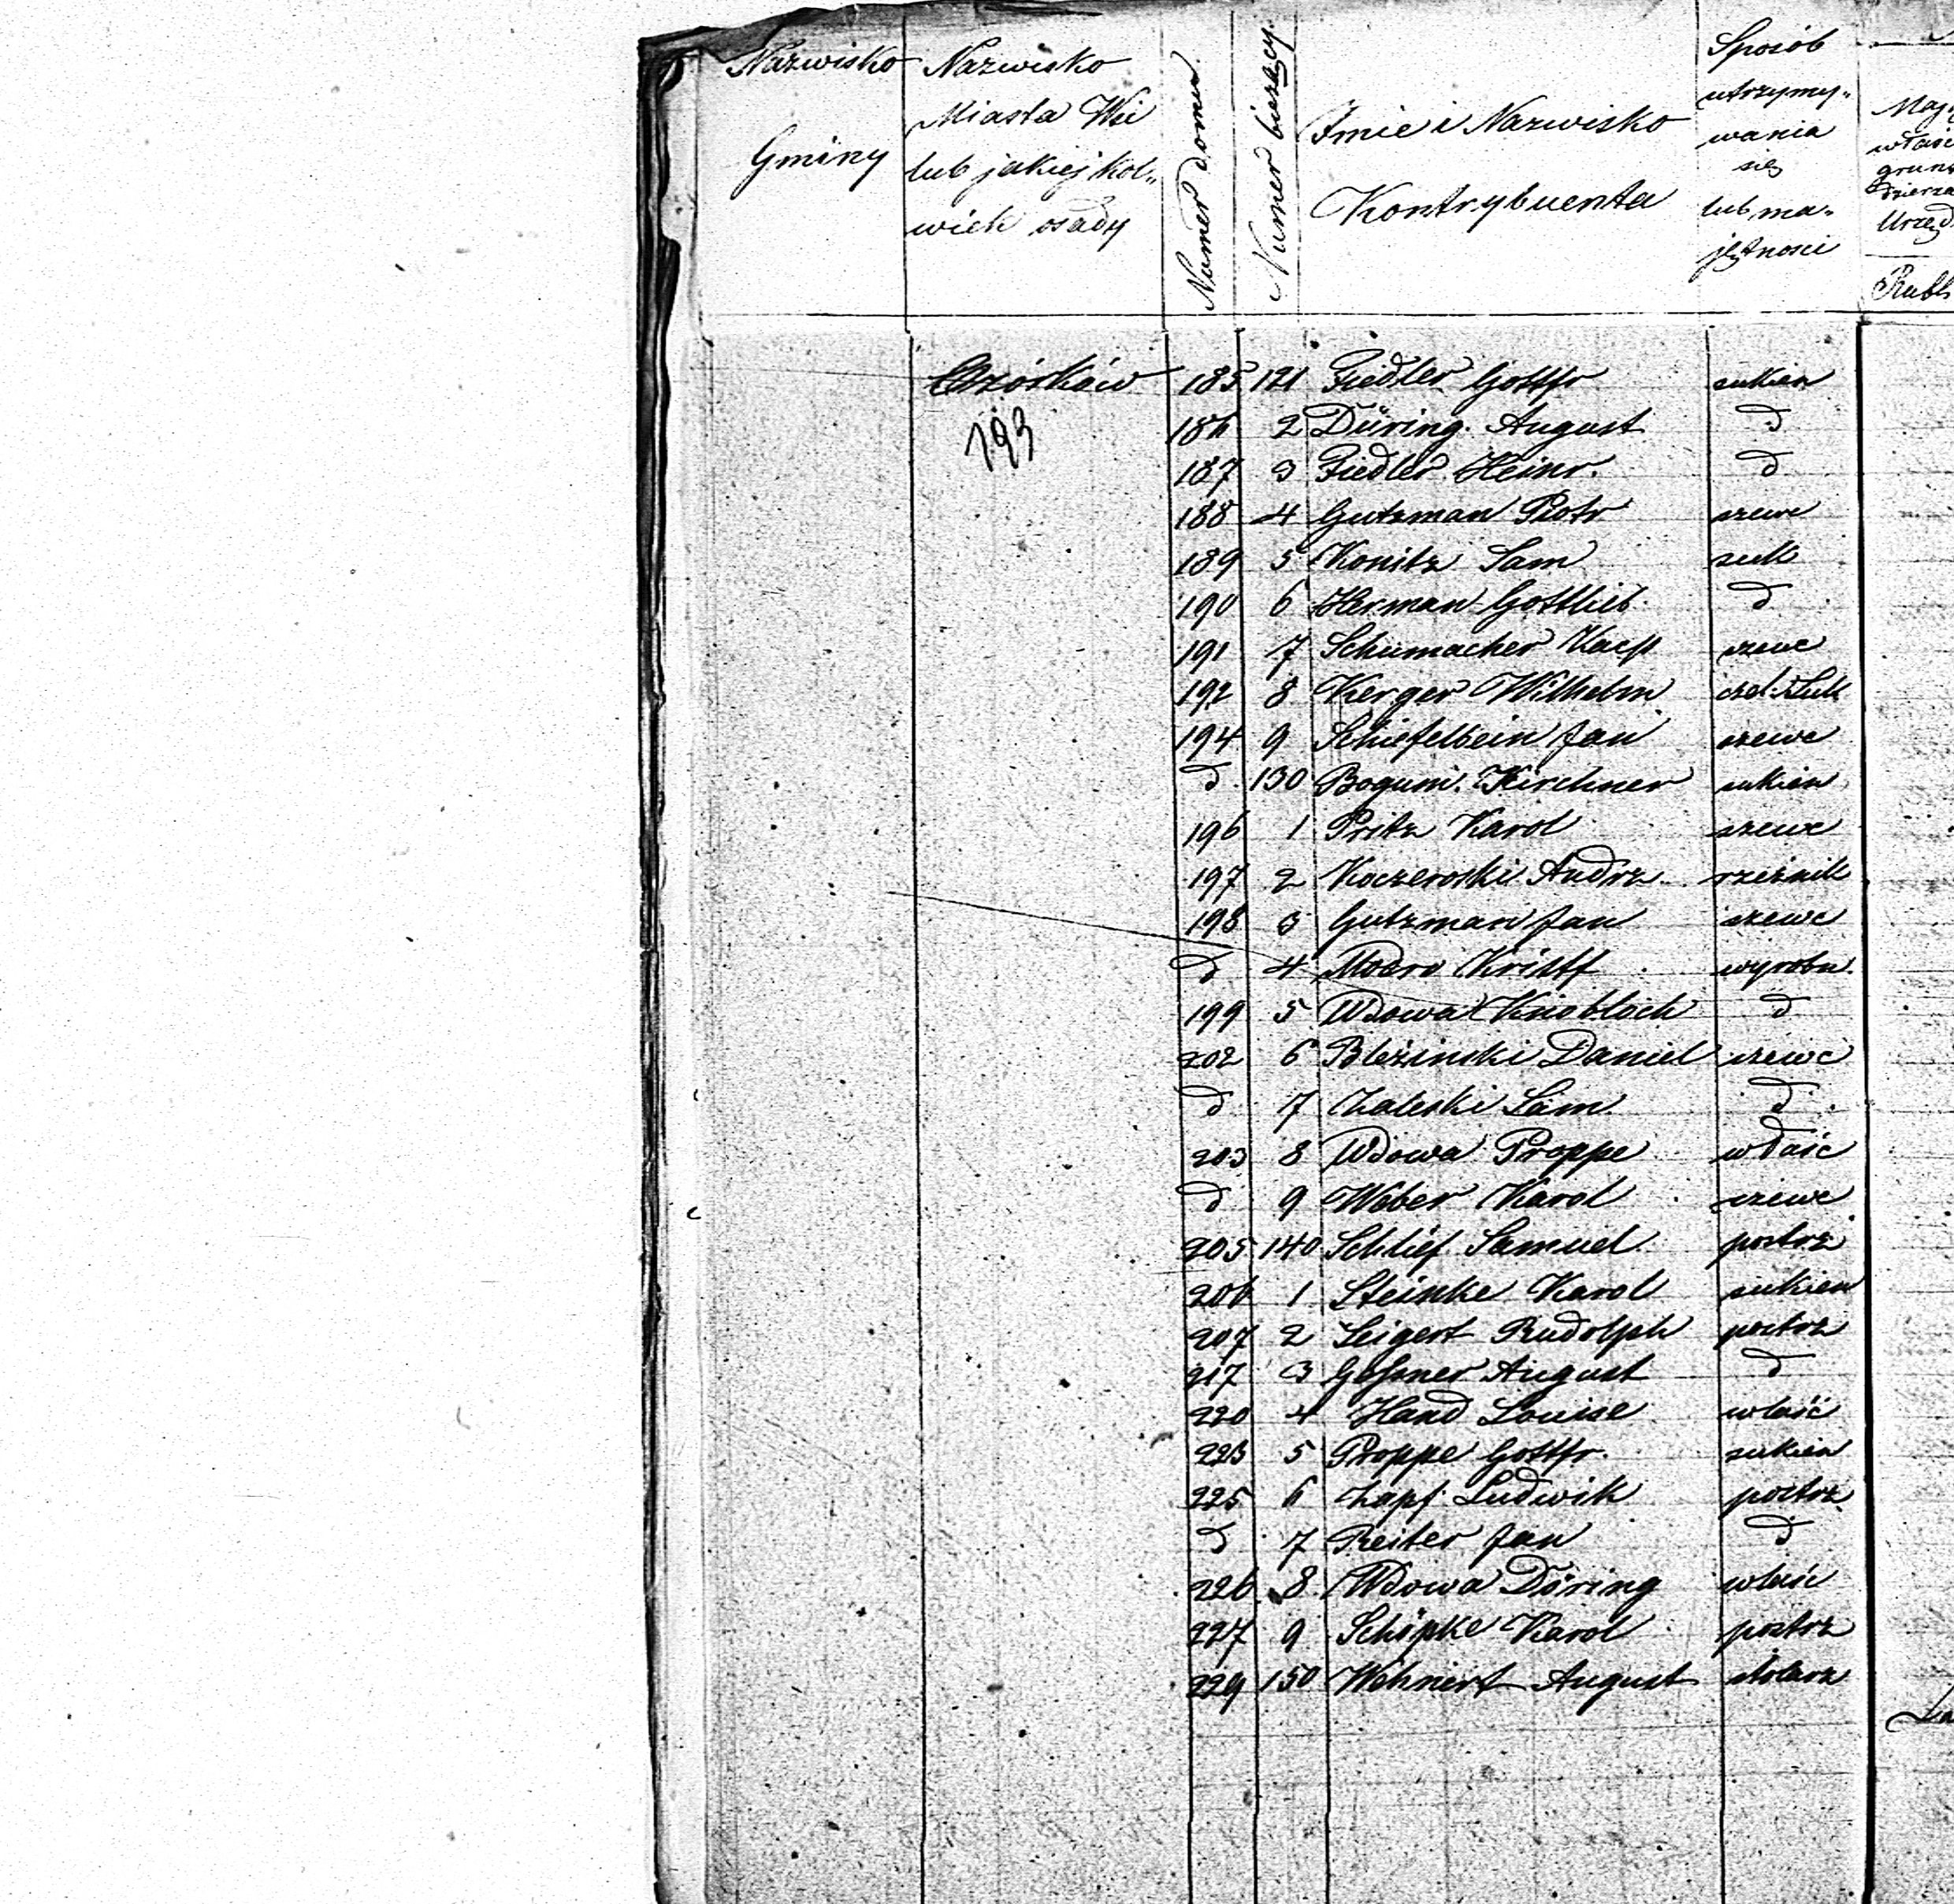 Nazwisko Gminy
Nazwisko Miasta Wsi lub jakiejkol„ wiek osady
Numer domu
Numer bieżący
Imie i Nazwisko Kontrybuenta
Sposób utrzymy„ wania się lub ma„ jętnosci
Rubl
Ozórków 185 121 Fiedler Gottfr sukien
193
186 2 Düring August d
187 3 Fiedler Heinr. d
188 4 Gutzman Piotr szewc
189 5 Konitz Sam suk
190 6 Herman Gottlieb d
191 7 Schumacher Kacp szewc
192 8 Kerger Wilhelm czel. Suk
194 9 Schiefelbein Jan szewc
d 130 Bogumi. Kirchner sukien
196 1 Pritz Karol szewc
197 2 Koczeroski Andrz rzeżnik
198 3 Gutzman Jan szewc
d 4 Modro Kristf wyrobn.
199 5 Wdowa Knobloch d
202 6 Bleżinski Daniel szewc
d 7 Zaleski Sam. d
203 8 Wdowa Proppe właśc
d 9 Weber Karol szewc
205 140 Schlief Samuel postrz
206 1 Steinke Karol sukien
207 2 Seigert Rudolph postrz
217 3 Gessner August d
220 4 Hand Louise właść
223 5 Proppe Gottfr. sukien
225 6 Zapf Ludwik postrz
d 7 Reiter Jan d
226 8 Wdowa Döring właśc
227 9 Schöpke Karol postrz
229 150 Wehnert August stolarz